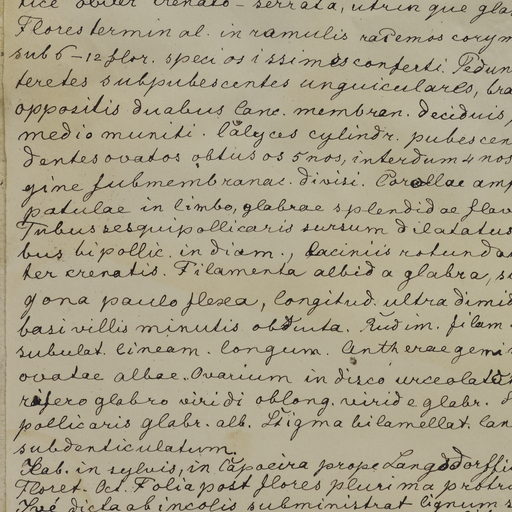 tice obiter crenato-serrata, utrinque gla
Flores terminal. in ramulis racemos corym
sub 6-12 flor. speciosissimos conferti. Pedun
teretes subpubescentes unguiculares, bra
oppositis duabus lanc. membran. deciduis,
medio muniti. Calyces cylindr. pubescen
dentes ovatos obtusos 5 nos, interdum 4 nos
gine submembranac. divisi. Corollae amp
patulae in limbo, glabrae splendidae flav
Tubus sesquipollicaris sursum dilatatus
bus bipollic. in diam., laciniis rotundat
ter crenatis. Filamenta albida glabra, su
gona paulo flexa, longitud. ultra dimid
basi villis minutis obtuta. Rudim. filam.
subulat. lineam. longum. Antherae gemi
ovatae albae. Ovarium in disco urceolato
glabro viridi oblong. viride glabr. S
pollicaris glabr. alb. Stigma bilamellat. lan
subdenticulatum.
Hab. in sylvis, in Capoeira prope Langsdorffii
Floret. Oct. Folia post flores plurima protru
dicta ab incolis subministrat lignum s